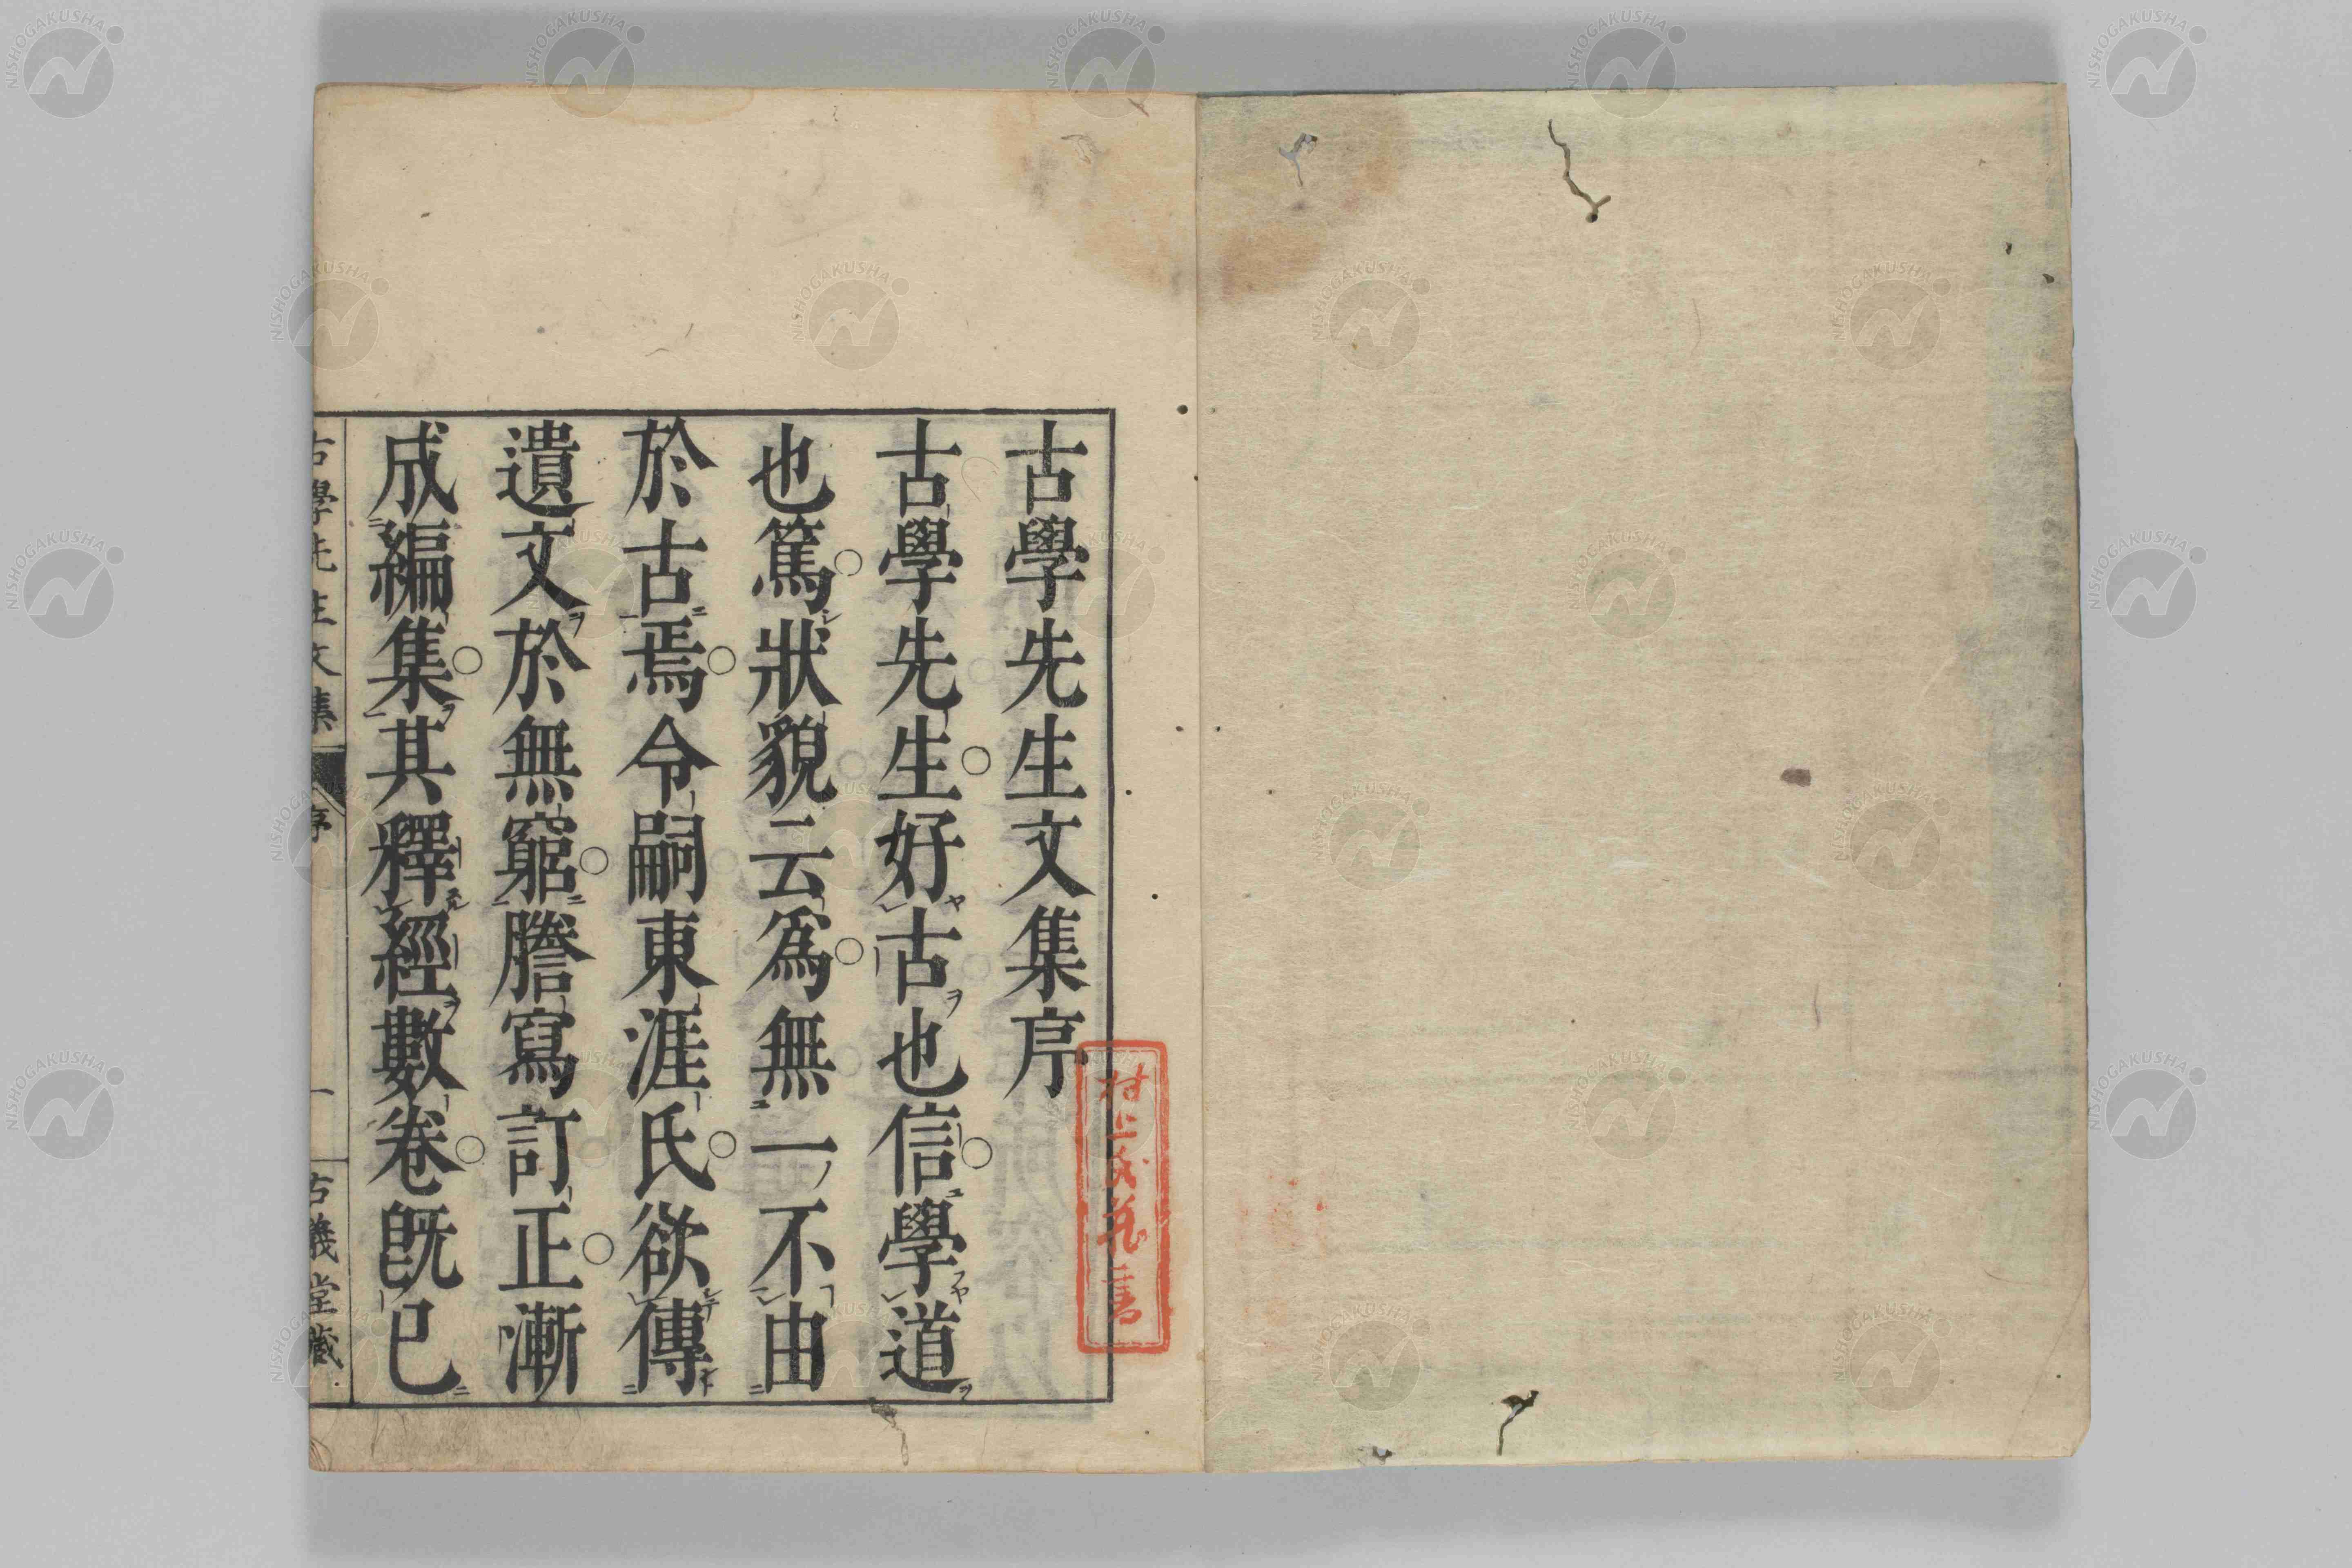 古學先生文集序
古學先生好古也信學道
也篤狀貌云爲無一不由
於古焉令嗣東涯氏欲傳
遺文於無窮謄寫訂正漸
成編集其釋經數卷既已
古學先生文集
序
一
古義堂藏
村上氏藏書
NISHOGAKUSHA